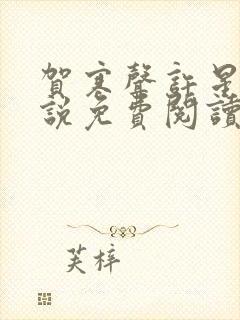 賀寒聲許星
說免費閱讀
芙梓